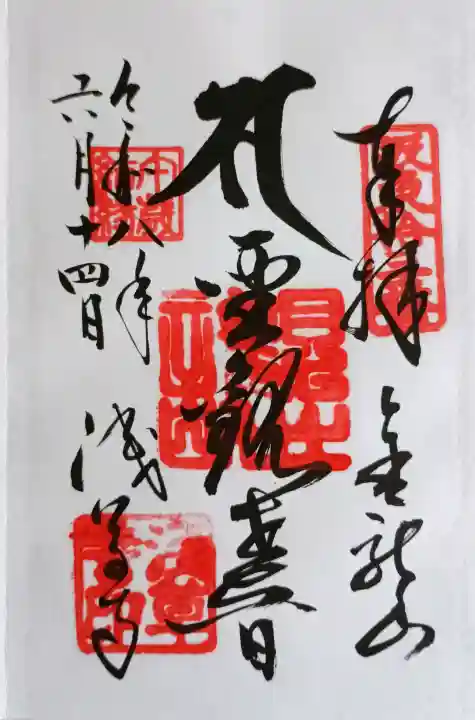 奉拝　金龍山
聖観世音
令和八年
六月十四日
浅草寺